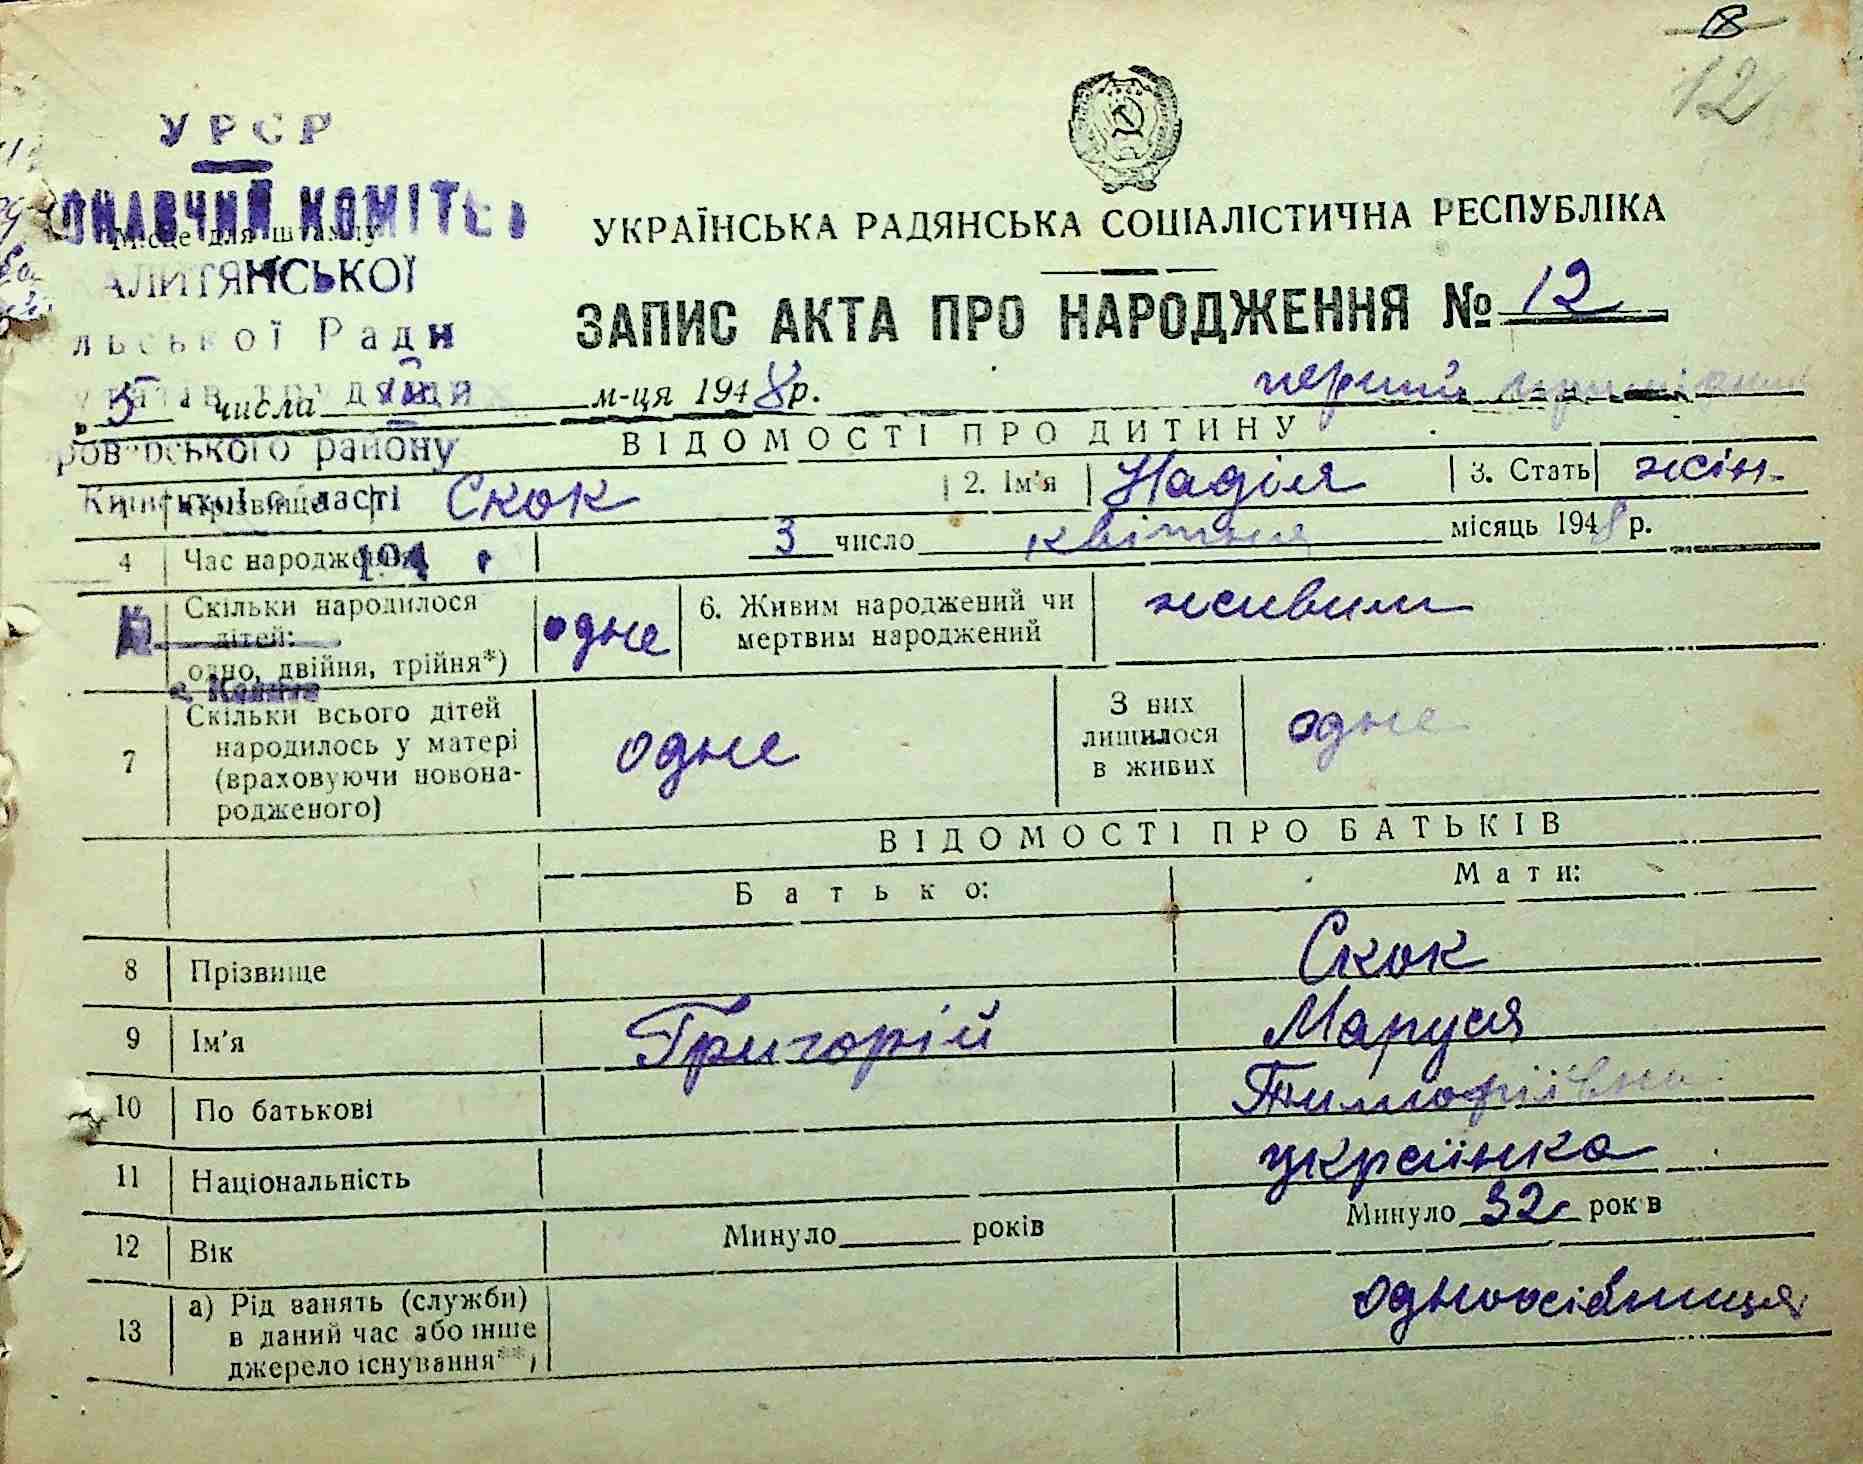 12
УРСР
ОНАВЧИЙ КОМІТЕ
Місце для штампу
АЛИТЯНСЬКОЇ
льської Ради
районну
області
УКРАЇНСЬКА РАДЯНСЬКА СОЦІАЛІСТИЧНА РЕСПУБЛІКА
ЗАПИС АКТА ПРО НАРОДЖЕННЯ № 12
5 числа м-ця 1948 р. перший примірник
ВІДОМОСТІ ПРО ДИТИНУ
1 Прізвище Скок 2. Ім'я Надія 3. Стать жін.
4 Час народження 3 число квітня місяць 1948 р.
194
Скільки народилося дітей: одно, двійня, трійня*) одне 6. Живим народжений чи мертвим народжений живим
7 Скільки всього дітей народилось у матері (враховуючи новонародженого) одне З них лишилося в живих одне
ВІДОМОСТІ ПРО БАТЬКІВ
Батько: Мати:
8 Прізвище Скок
9 Ім'я Григорій Маруся
10 По батькові Тимофіївна
11 Національність українка
12 Вік Минуло років Минуло 32 років
13 а) Рід занять (служби) в даний час або інше джерело існування**) одноосібниця